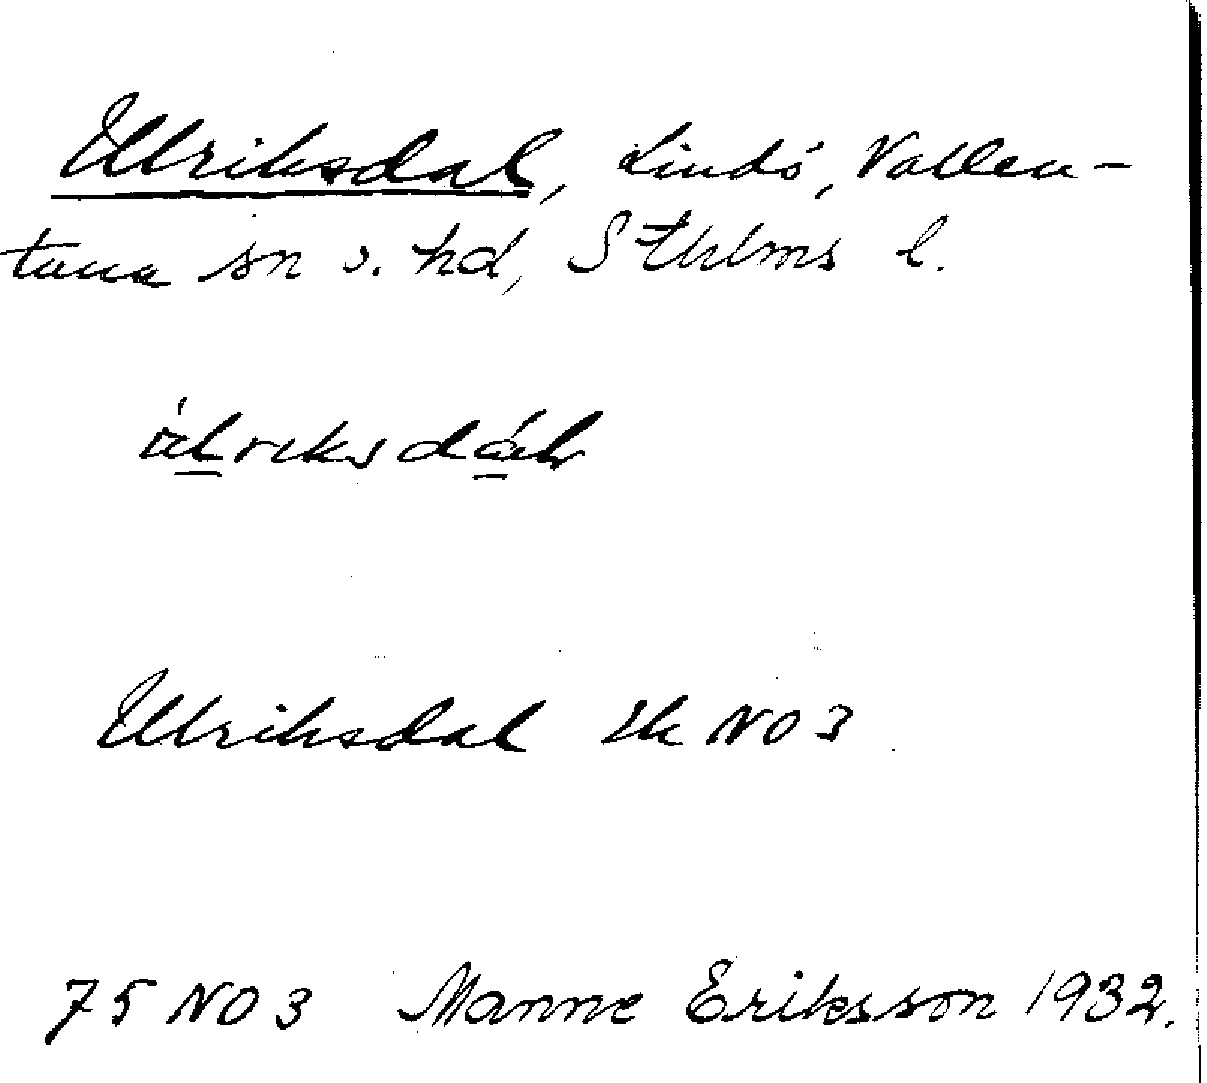 Ulriksdal, Lindö, Vallen-
tuna sn o. hd, Sthlms l.
úlriksdáls
Ulriksdal Ek NO 3
75 NO 3 Manne Eriksson 1932.